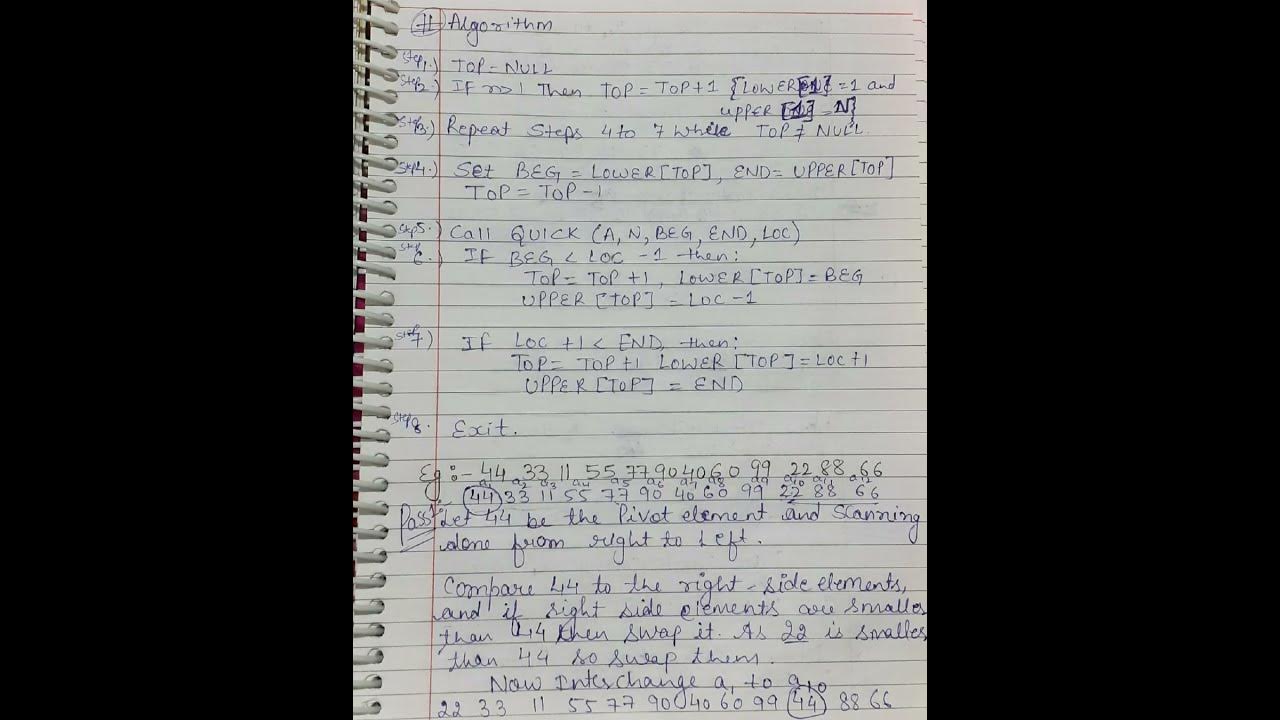 # Algorithm
Step1.) TOP = NULL
Step2.) IF n>1 Then TOP = TOP+1 {LOWER[1] = 1 and
UPPER [1] = N}
Step3.) Repeat Steps 4 to 7 while TOP ≠ NULL.
Step4.) Set BEG = LOWER[TOP], END = UPPER[TOP]
TOP = TOP - 1
Step5.) Call QUICK (A, N, BEG, END, LOC)
Step 6.) If BEG < LOC - 1 then:
TOP = TOP + 1, LOWER [TOP] = BEG
UPPER [TOP] = LOC - 1
Step 7) If LOC + 1 < END, then:
TOP = TOP + 1 LOWER [TOP] = LOC + 1
UPPER [TOP] = END
Step 8. Exit.
Eg :- 44 33 11 55 77 90 40 60 99 22 88 66
a1 a2 a3 a4 a5 a6 a7 a8 a9 a10 a11 a12
44 33 11 55 77 90 40 60 99 22 88 66
Pass1: Let 44 be the Pivot element and Scanning
done from right to left.
Compare 44 to the right-side elements,
and if right side elements are smaller
than 44 then swap it. As 22 is smaller
than 44 so swap them.
Now Interchange a1 to a10
22 33 11 55 77 90 40 60 99 44 88 66